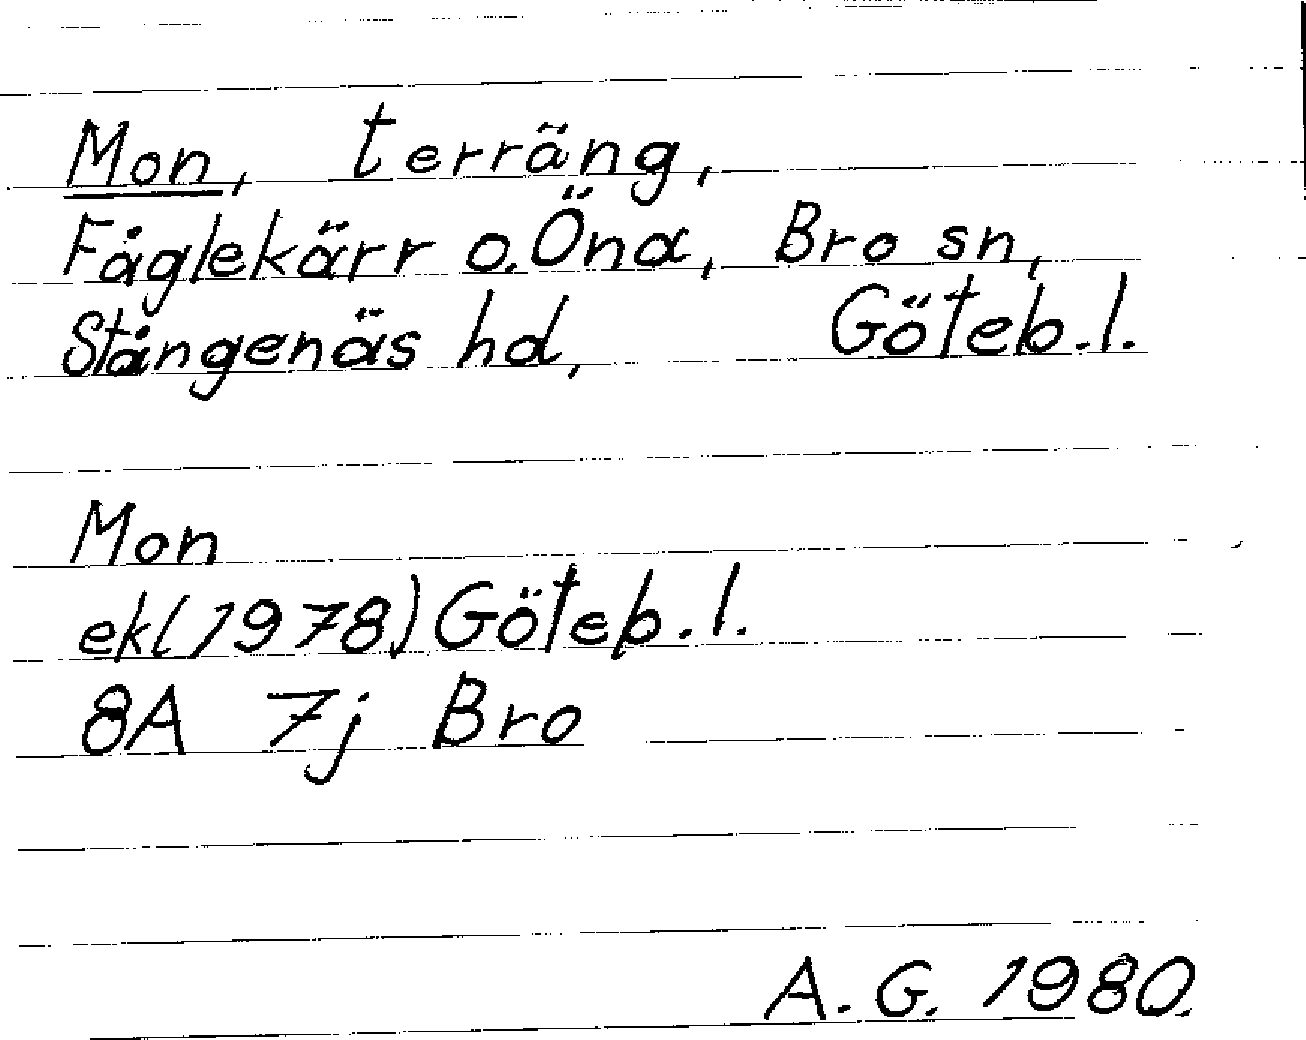 Mon, terräng,
Fåglekärr o. Öna, Bro sn,
Stångenäs hd, Göteb. l.
Mon
ekl(1978) Göteb. l.
8A 7j Bro
A. G. 1980.